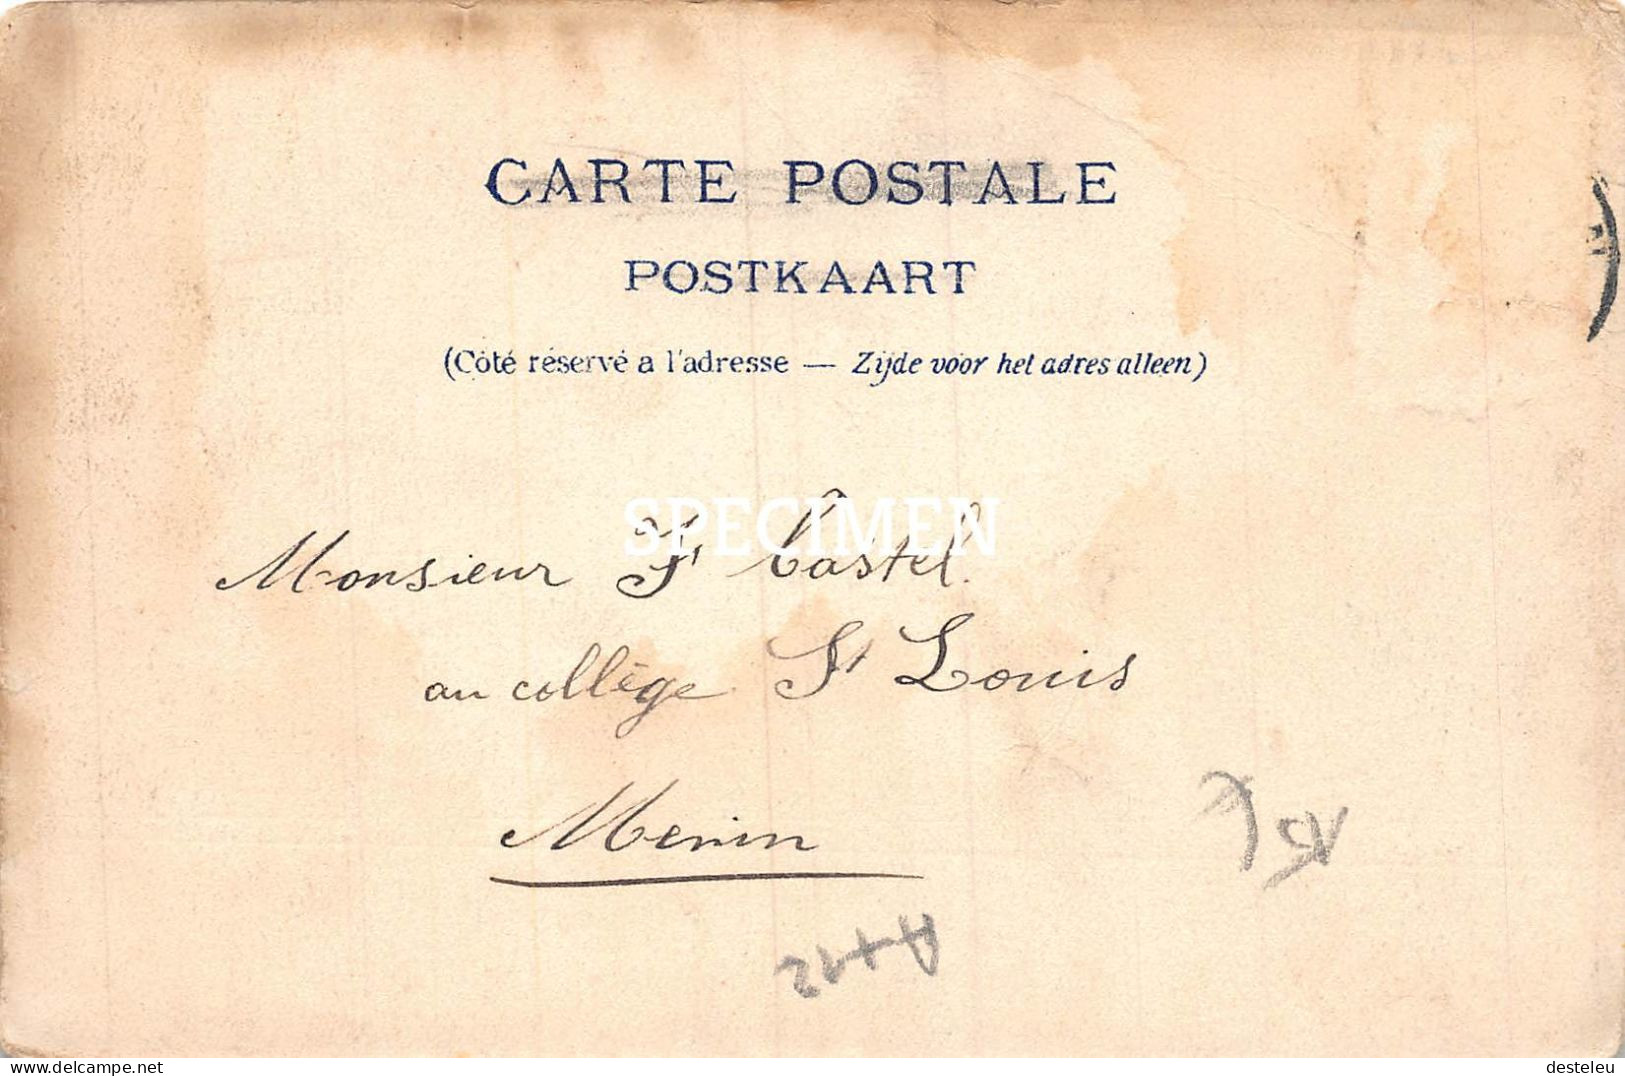 CARTE POSTALE
POSTKAART
(Côté réservé a l'adresse — Zijde voor het adres alleen)
SPECIMEN
Monsieur Castel
au collège St Louis
Menin
A+12
delcampe.net
desteleu